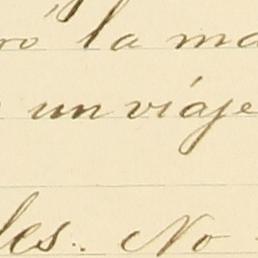 ró la ma
un viaje
les. No